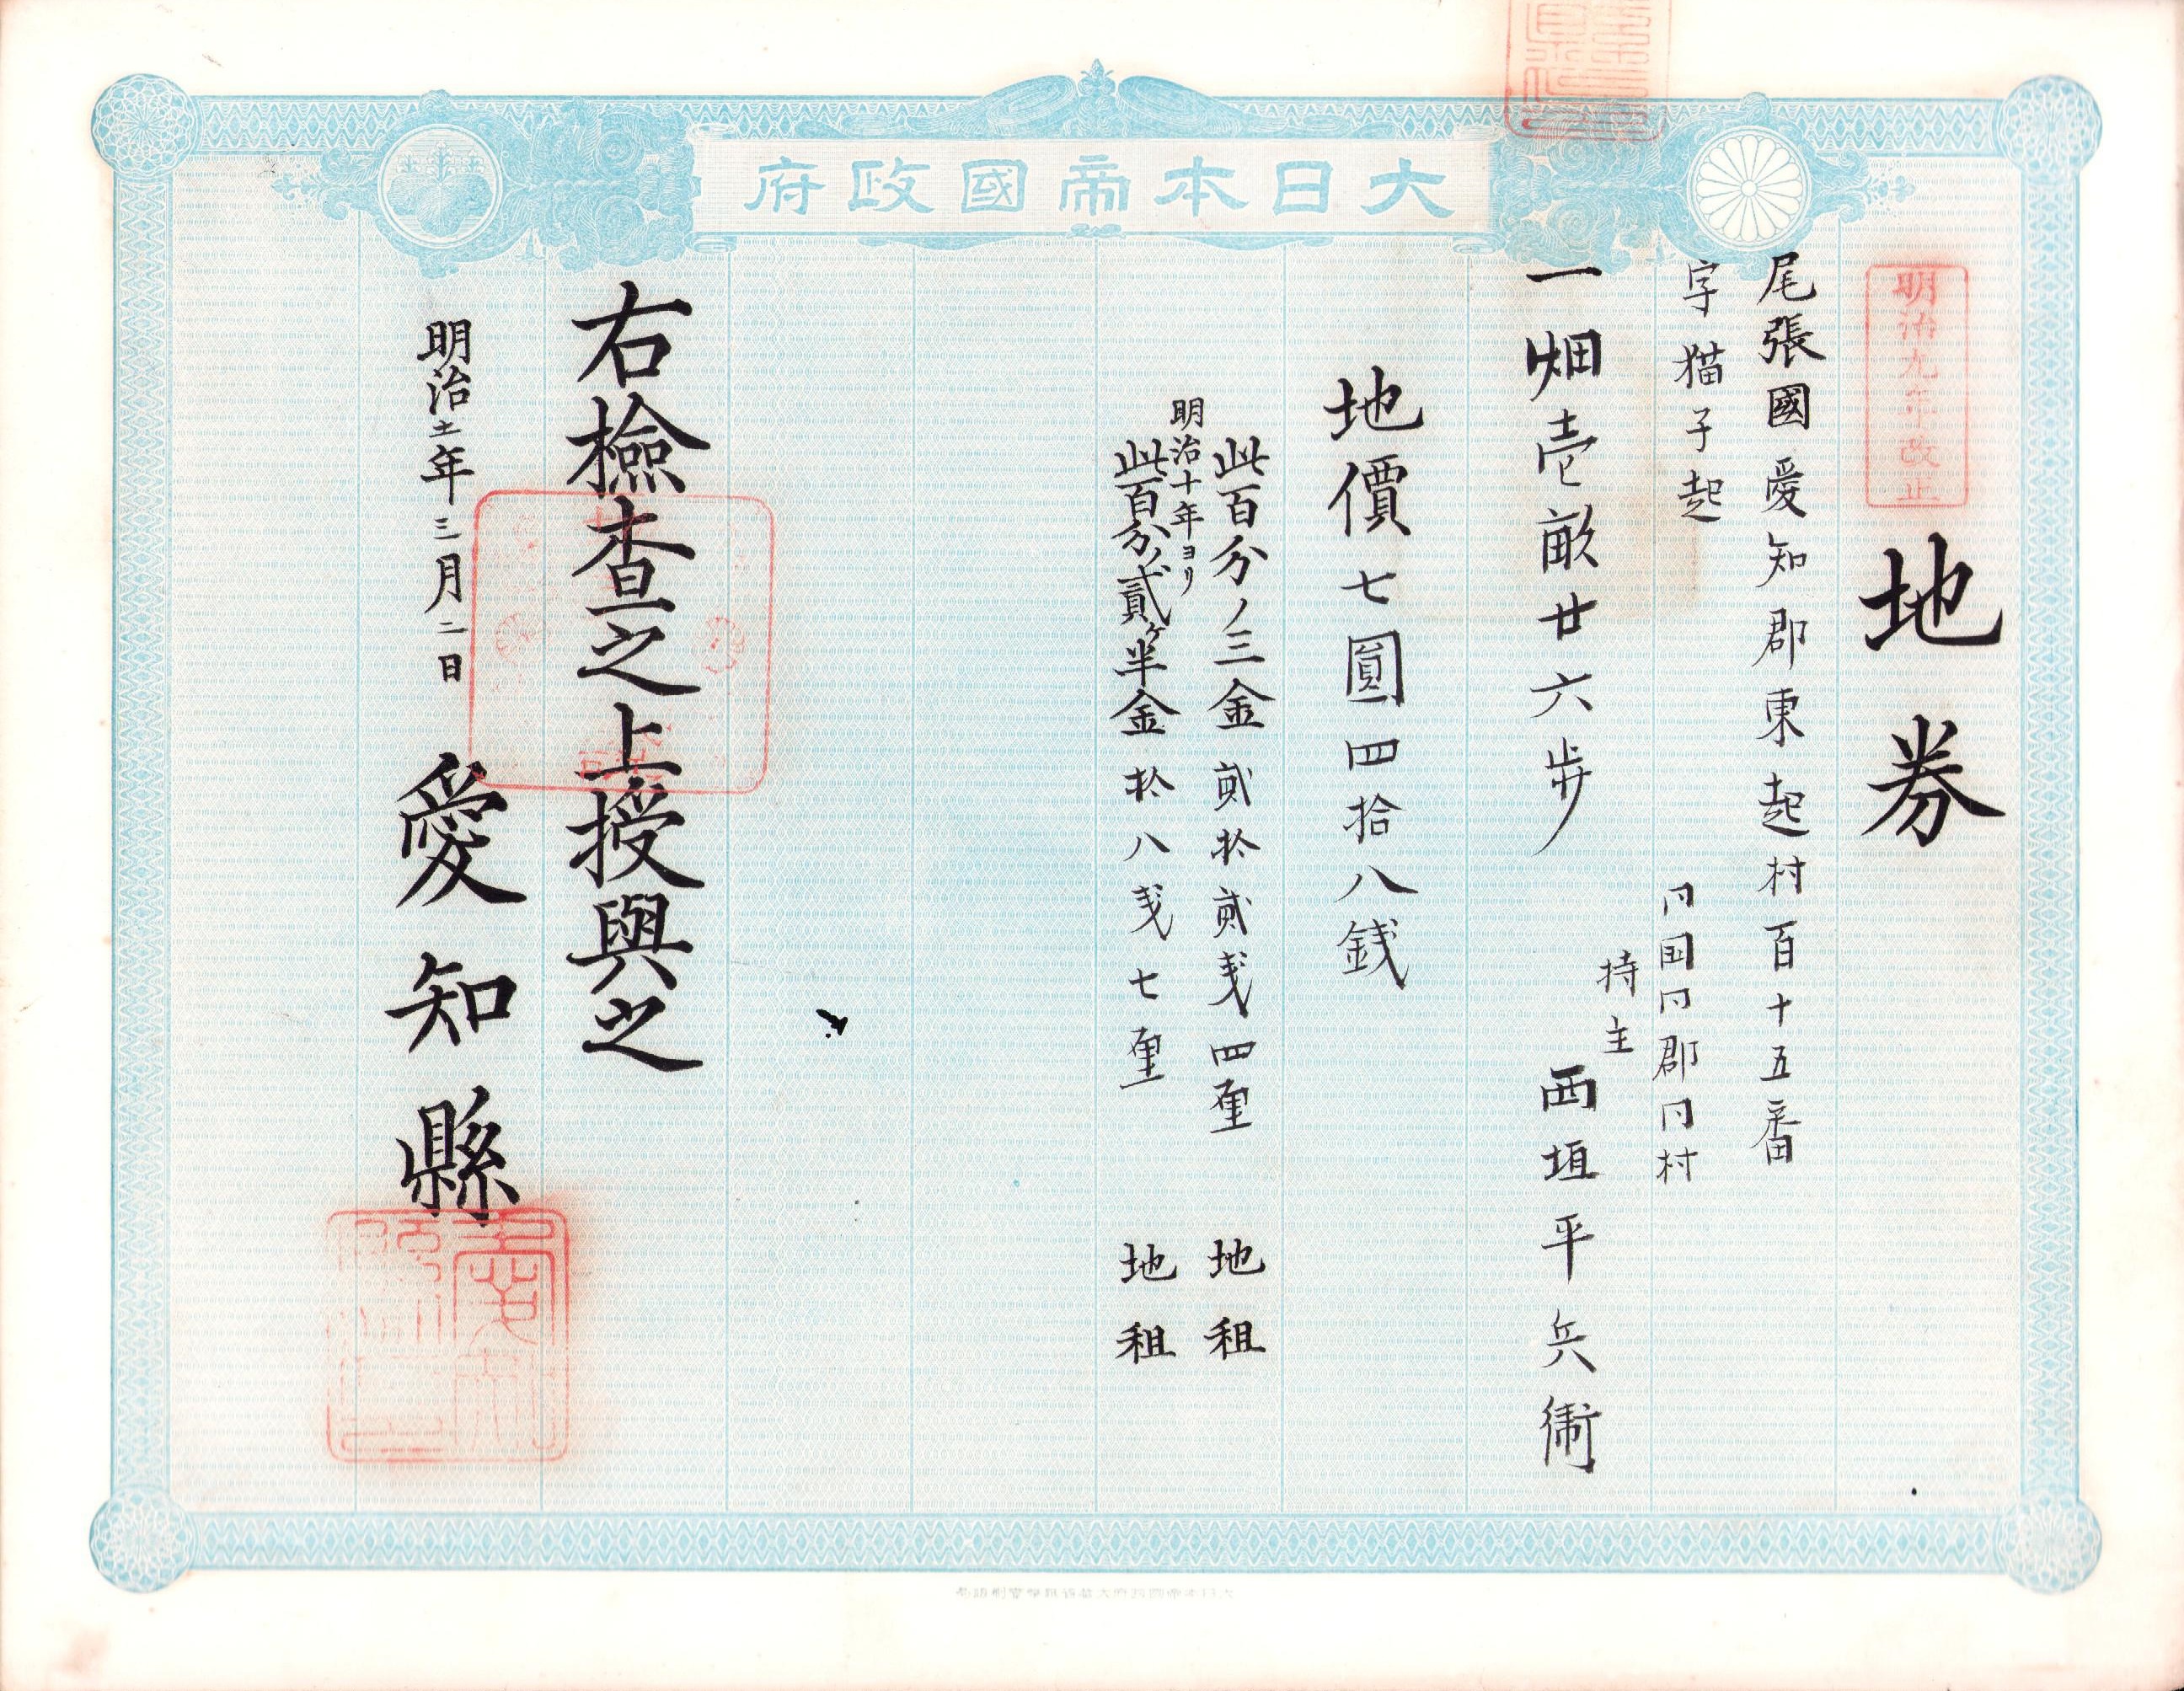 大日本帝國政府
明治九年改正
地券
尾張國愛知郡東起村百十五番
字猫子起
一畑壱畝廿六歩
同国同郡同村
持主
西垣平兵衛
地價七圓四拾八銭
此百分ノ三金貳拾貳戔四厘 地租
明治十年ヨリ
此百分ノ貳ケ半金拾八戔七厘 地租
右檢査之上授與之
明治十二年三月二日
愛知縣